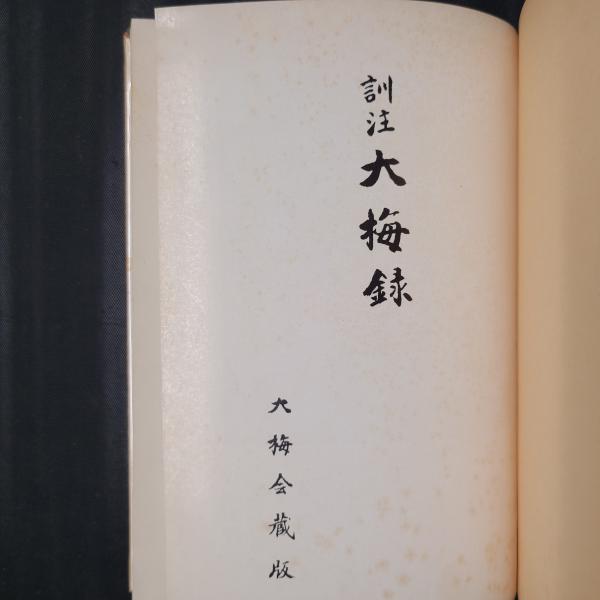 訓注大梅録
大梅会蔵版